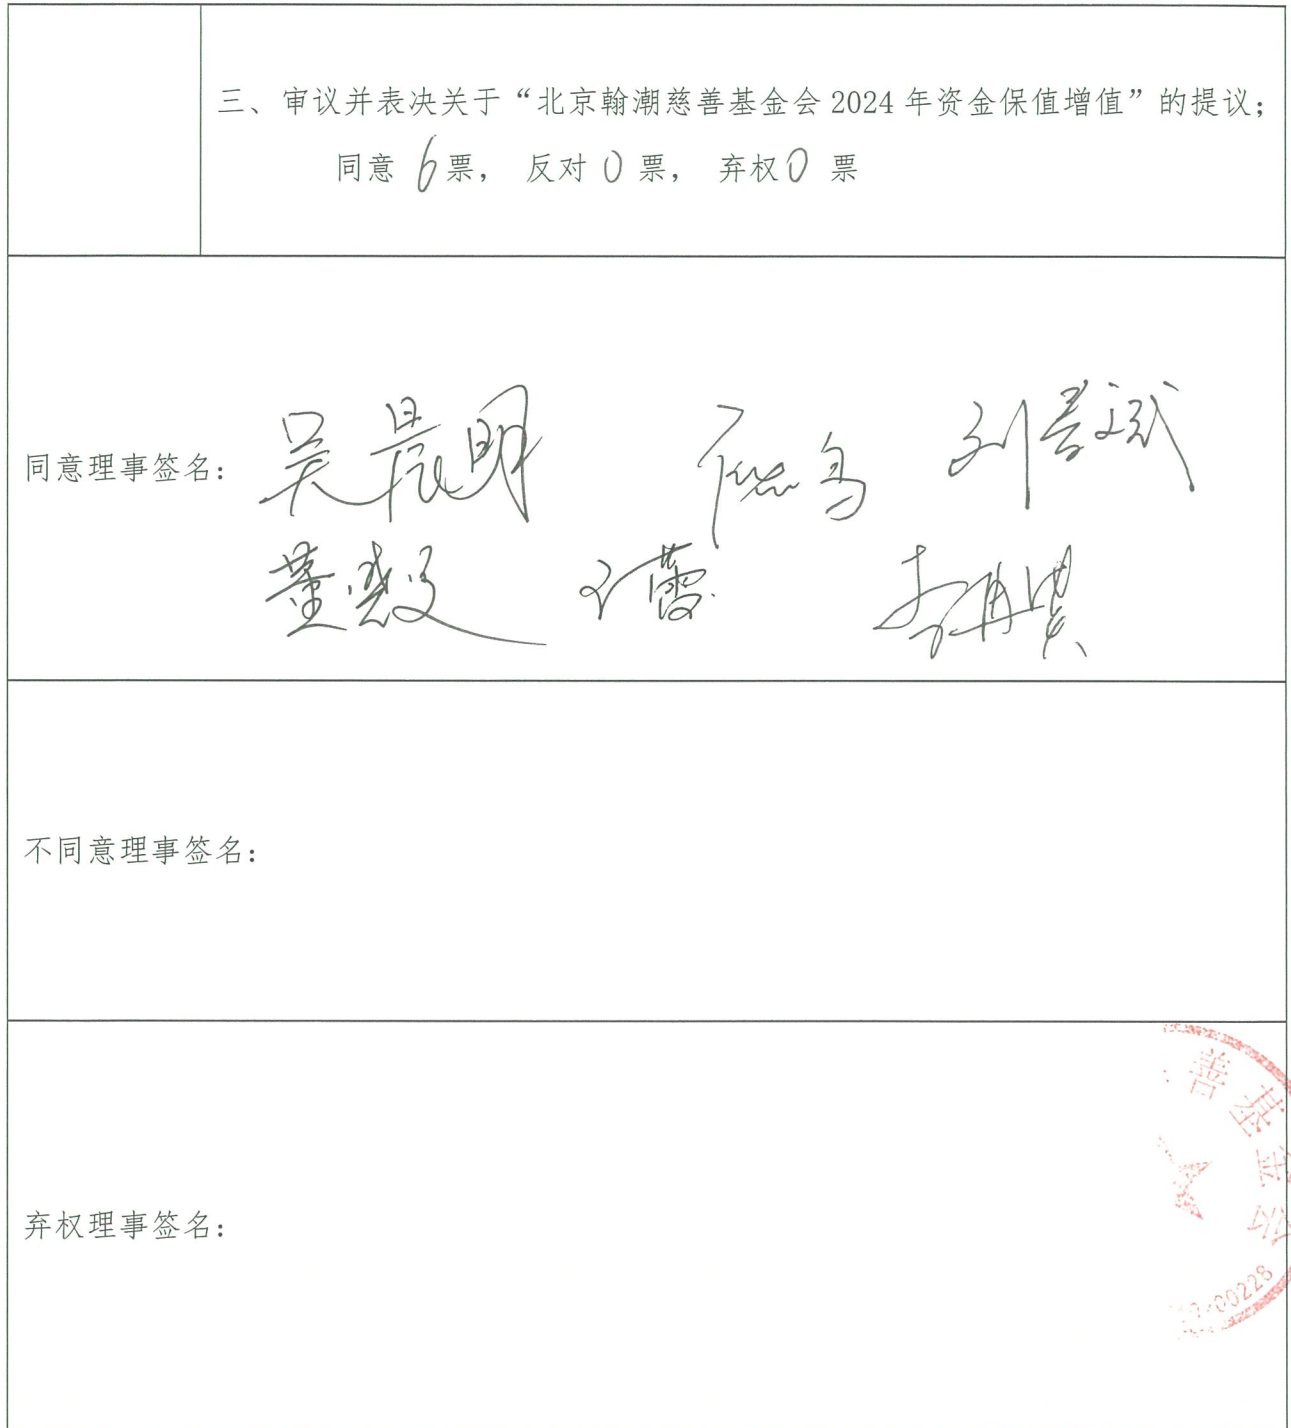 三、审议并表决关于“北京翰潮慈善基金会 2024 年资金保值增值”的提议；
同意 6 票， 反对 0 票， 弃权 0 票
同意理事签名： 吴晨明
董
不同意理事签名：
善基金会
弃权理事签名：
00228